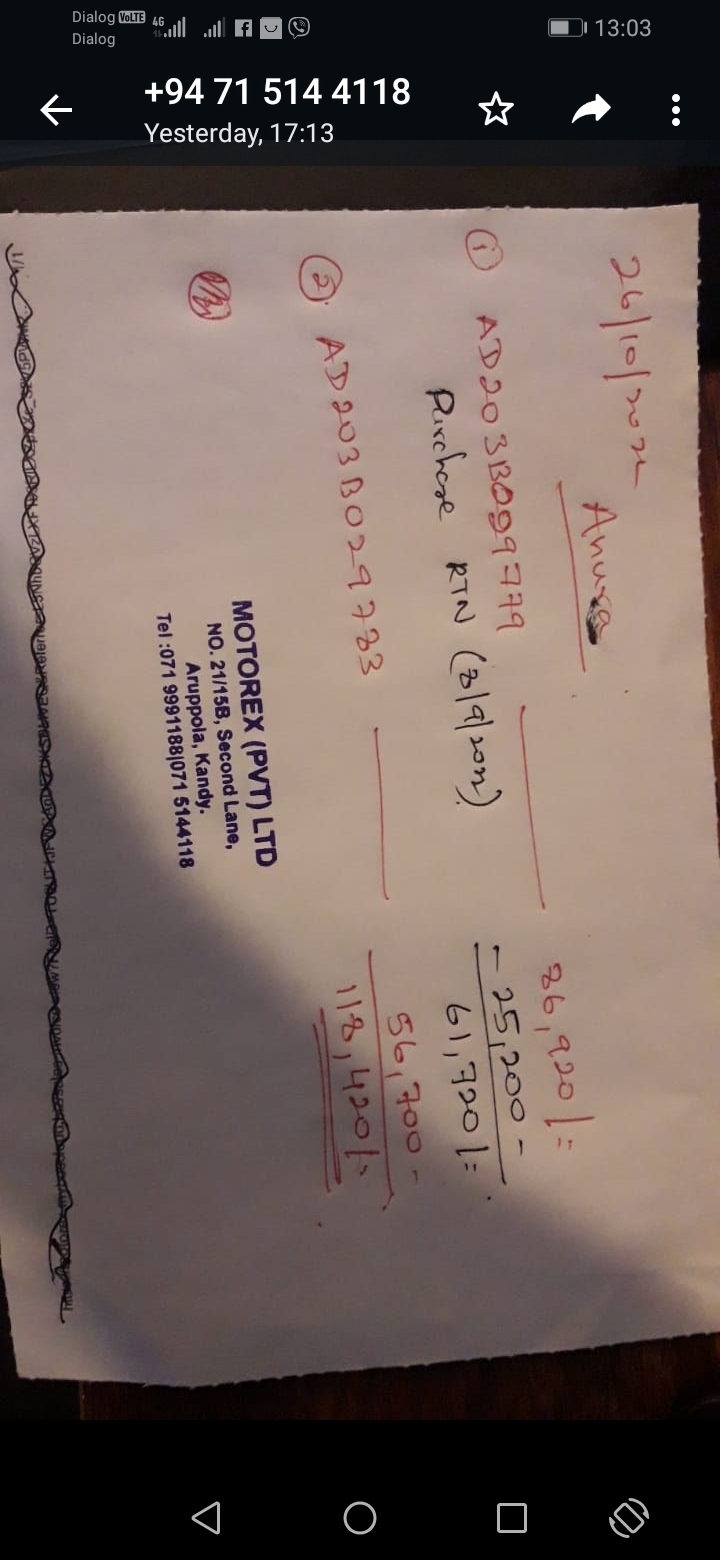 Dialog VoLTE 4G
Dialog
13:03
+94 71 514 4118
Yesterday, 17:13
26/10/2022
Anura
① AD203B029779 86,920/=
Purchase RTN (8/9/2022) - 25,200 -
61,720/=
② AD203B029783 56,700 -
118,420/=
MOTOREX (PVT) LTD
NO. 21/15B, Second Lane,
Aruppola, Kandy.
Tel :071 9991188|071 5144118